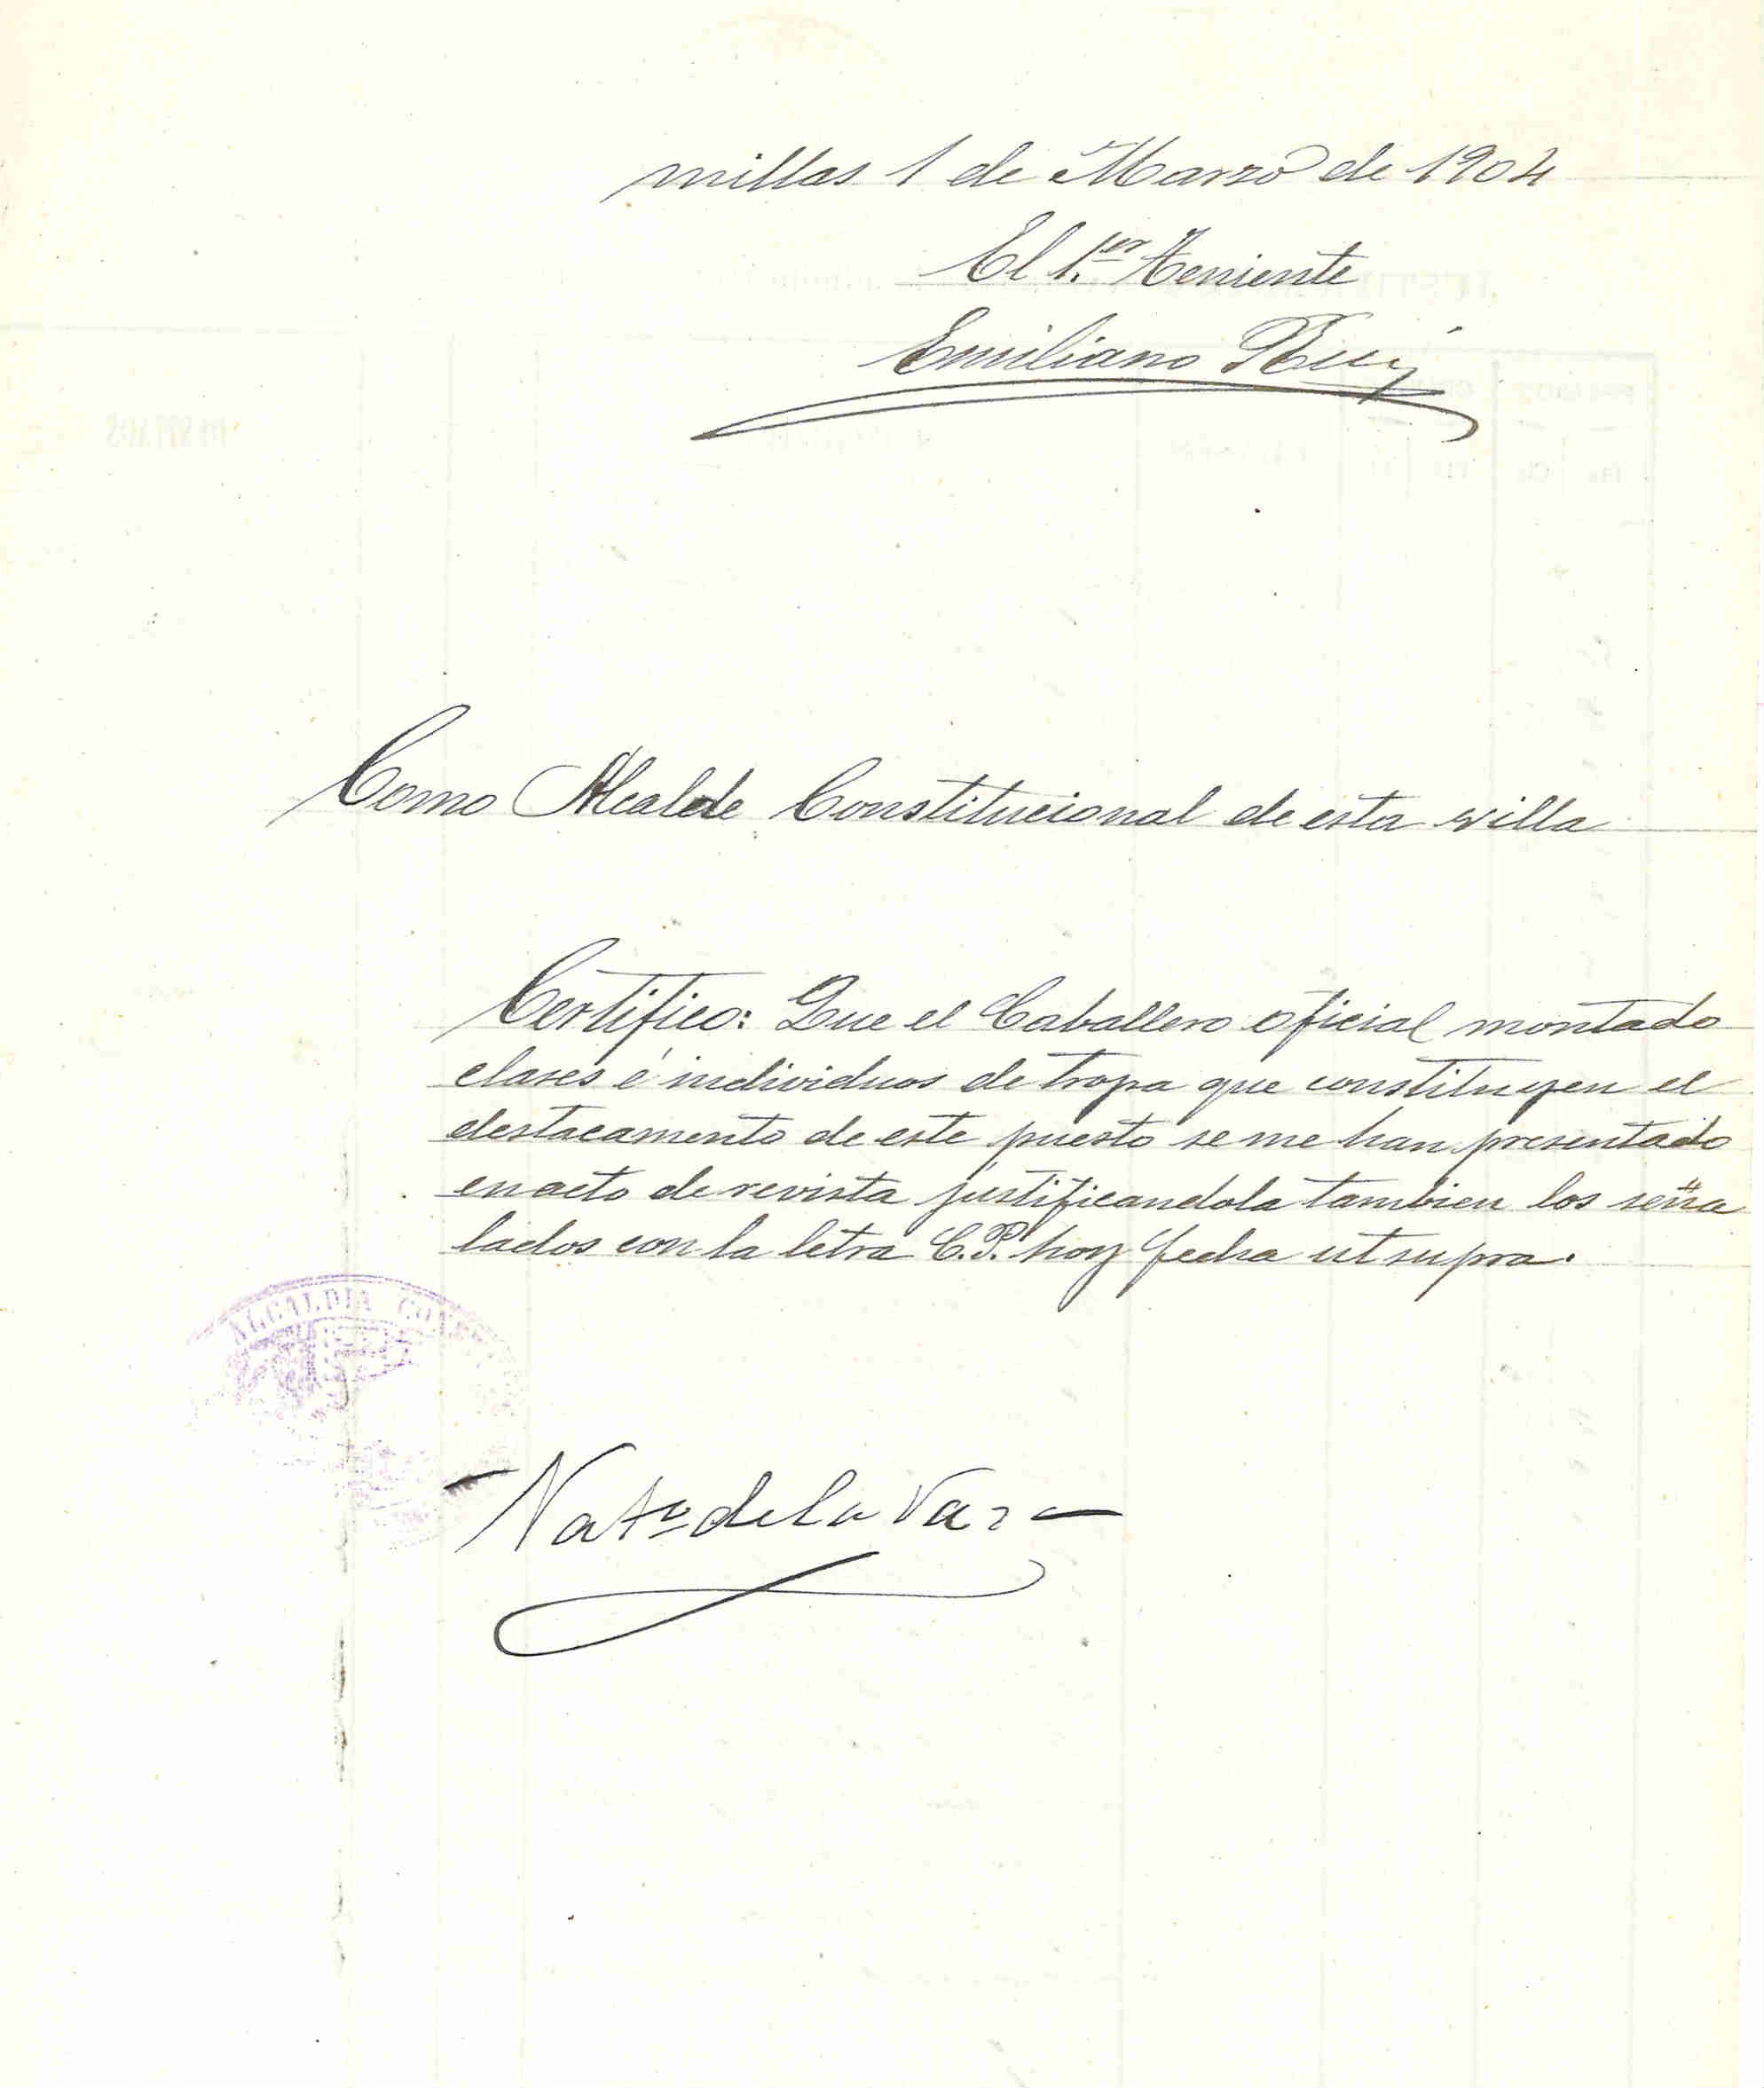 millas 1 de Marzo de 1904
El 1.er Teniente
Emiliano Ruiz
Como Alcalde Constitucional de esta villa
Certifico: Que el Caballero oficial montado
clases é individuos de tropa que constituyen el
destacamento de este puesto se me han presentado
en acto de revista justificandola tambien los seña
lados con la letra C.P. hoy fecha ut supra.
ALCALDIA CONS
Nat.o de la Vara